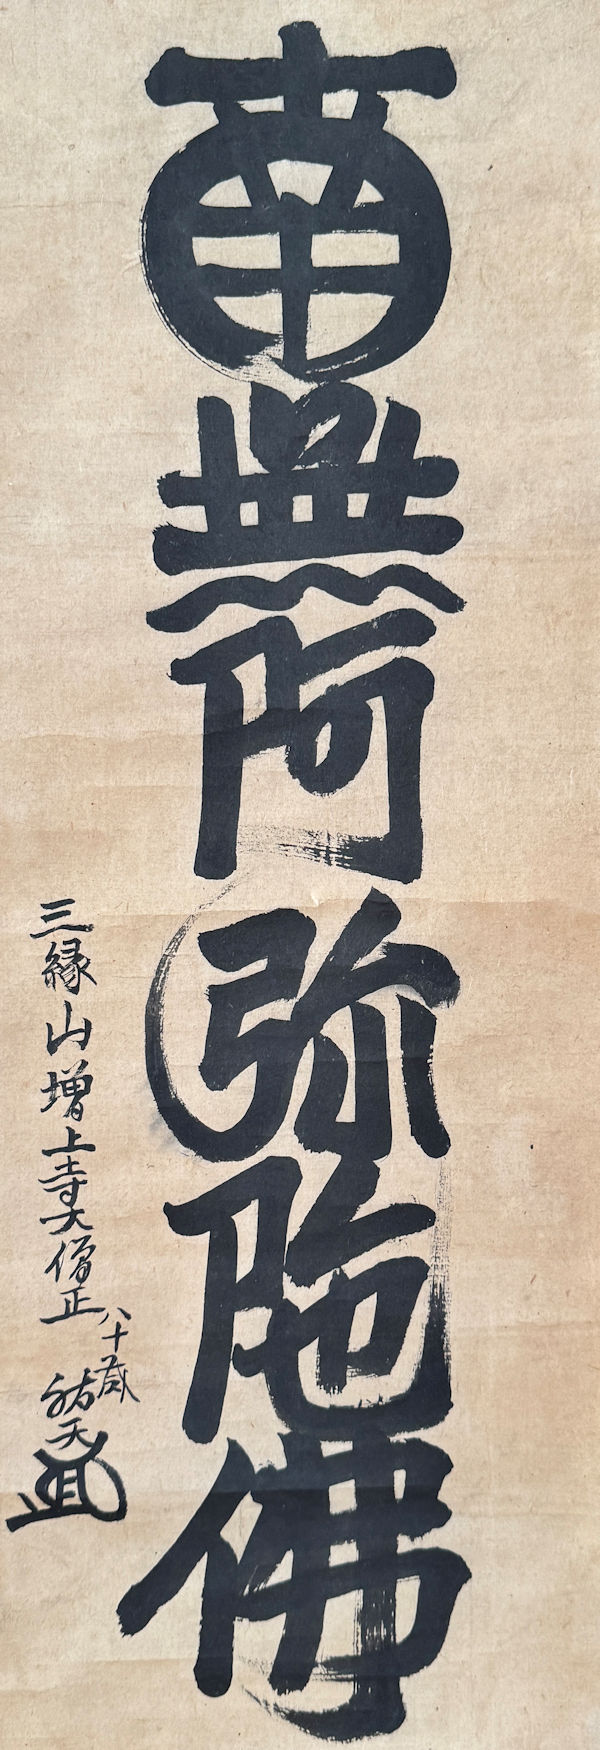 南無阿弥陀佛
三縁山増上寺大僧正
八十歳
祐天